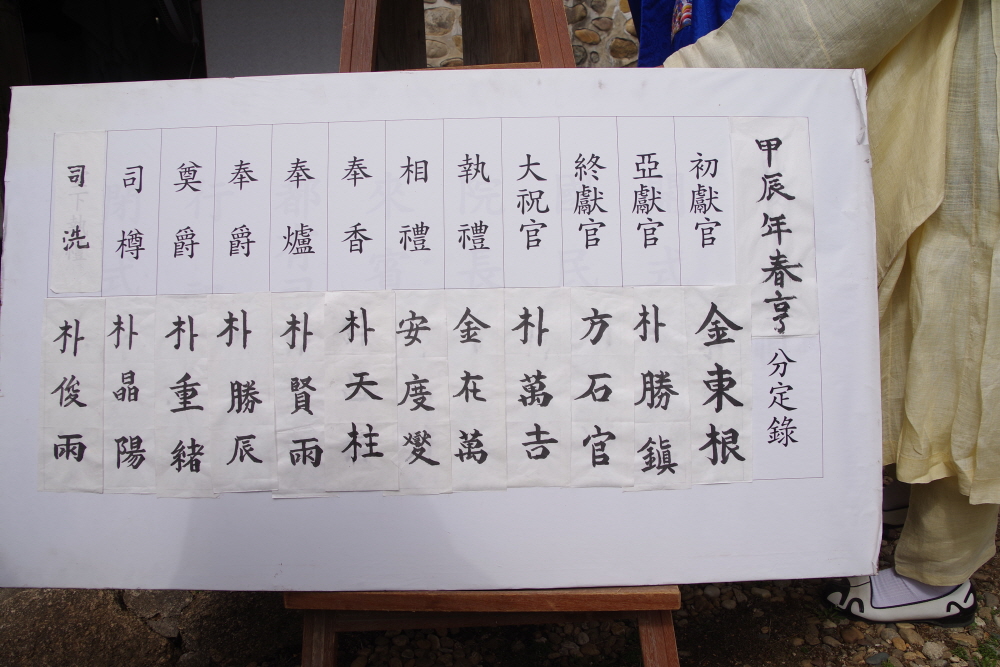 甲辰年春享 分定錄
初獻官 金東根
亞獻官 朴勝鎭
終獻官 方石官
大祝官 朴萬吉
執禮 金在萬
相禮 安度燮
奉香 朴天柱
奉爐 朴賢雨
奉爵 朴勝辰
奠爵 朴重緖
司樽 朴晶陽
司洗 朴俊雨